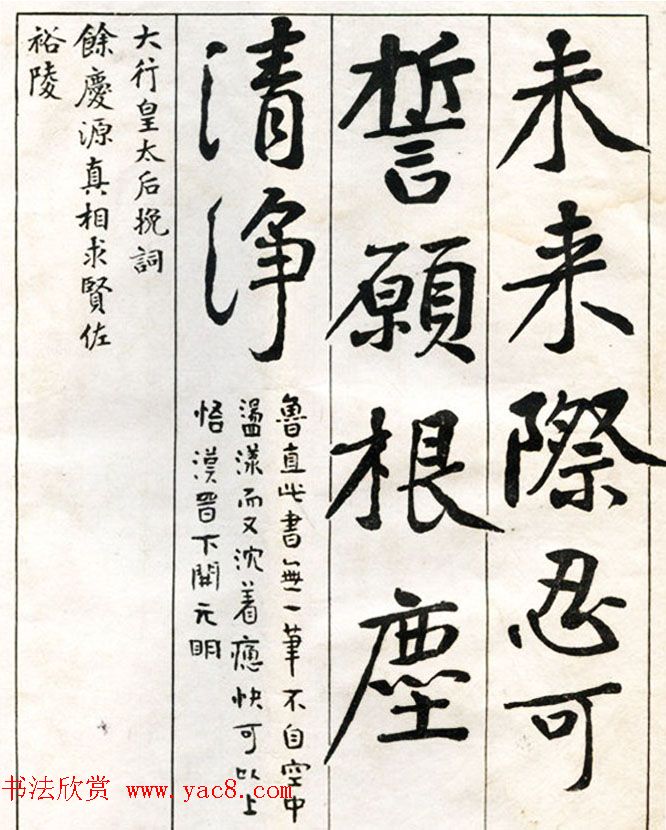 未来際忍可
誓願根塵
清浄
魯直此書無一筆不自空中
盪漾而又沈着痛快可以上
悟漢晋下開元明
大行皇太后挽詞
餘慶源真相求賢佐
裕陵
书法欣赏 www.yac8.com